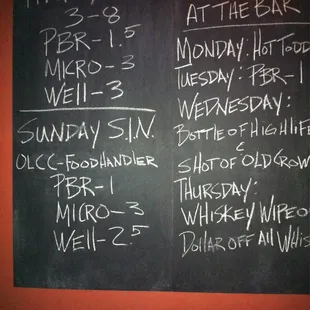 3-8
PBR-1.5
MICRO-3
WELL-3
SUNDAY S.I.N.
OLCC-FOODHANDLER
PBR-1
MICRO-3
WELL-2.5
AT THE BAR
MONDAY: HOT TODD
TUESDAY: PBR-1
WEDNESDAY:
BOTTLE OF HIGHLIFE
&
SHOT OF OLD CROW
THURSDAY:
WHISKEY WIPEO
DOLLAR OFF ALL WHIS